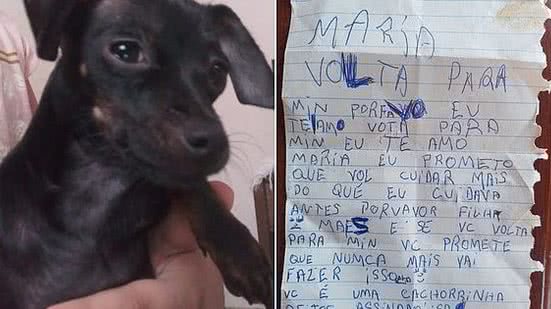 MARIA
VOLTA PARA
MIN PORFAVO EU
TE AMO VOTA PARA
MIN EU TE AMO
MARIA EU PROMETO
QUE VOL CUIDAR MAIS
DO QUE EU CUIDAVA
ANTES PORVAVOR FILHA
MAES E SE VC VOLTA
PARA MIN VC PROMETE
QUE NUMCA MAIS VAI
FAZER ISSO
VC É UMA CACHORRINHA